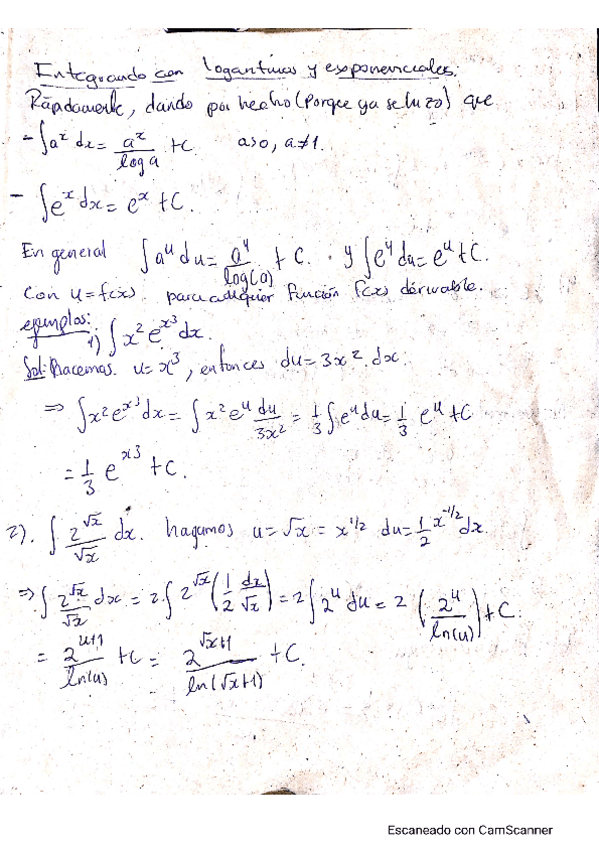 Integrando con logaritmos y exponenciales:
Rápidamente, dando por hecho (porque ya se hizo) que
- ∫a^x dx = a^x/log a + C. a>0, a≠1.
- ∫e^x dx = e^x + C.
En general ∫a^u du = a^u/log(a) + C. y ∫e^u du = e^u + C.
Con u=f(x). para cualquier función f(x) derivable.
ejemplos:
1) ∫x^2 e^{x^3} dx.
Sol: Hacemos. u=x^3, entonces du=3x^2.dx
⇒ ∫x^2 e^{x^3} dx = ∫x^2 e^u du/3x^2 = 1/3 ∫e^u du = 1/3 e^u + C
= 1/3 e^{x^3} + C.
2). ∫ 2^{√x}/√x dx. hagamos u=√x = x^{1/2} du = 1/2 x^{-1/2} dx.
⇒ ∫ 2^{√x}/√x dx = 2∫2^{√x} (1/2 dx/√x) = 2∫2^u du = 2 (2^u/ln(u)) + C.
= 2^{u+1}/ln(u) + C = 2^{√x+1}/ln(√x+1) + C.
Escaneado con CamScanner